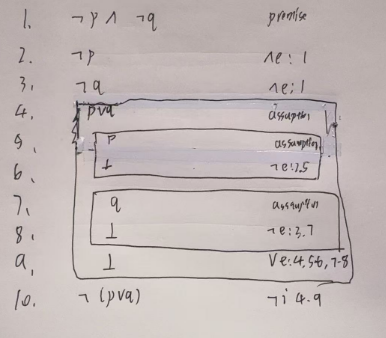 1. ¬p ∧ ¬q premise
2. ¬p ∧e: 1
3. ¬q ∧e: 1
4. p∨q assumption
5. p assumption
6. ⊥ ¬e: 2,5
7. q assumption
8. ⊥ ¬e: 3,7
9. ⊥ ∨e: 4,5-6,7-8
10. ¬(p∨q) ¬i 4-9